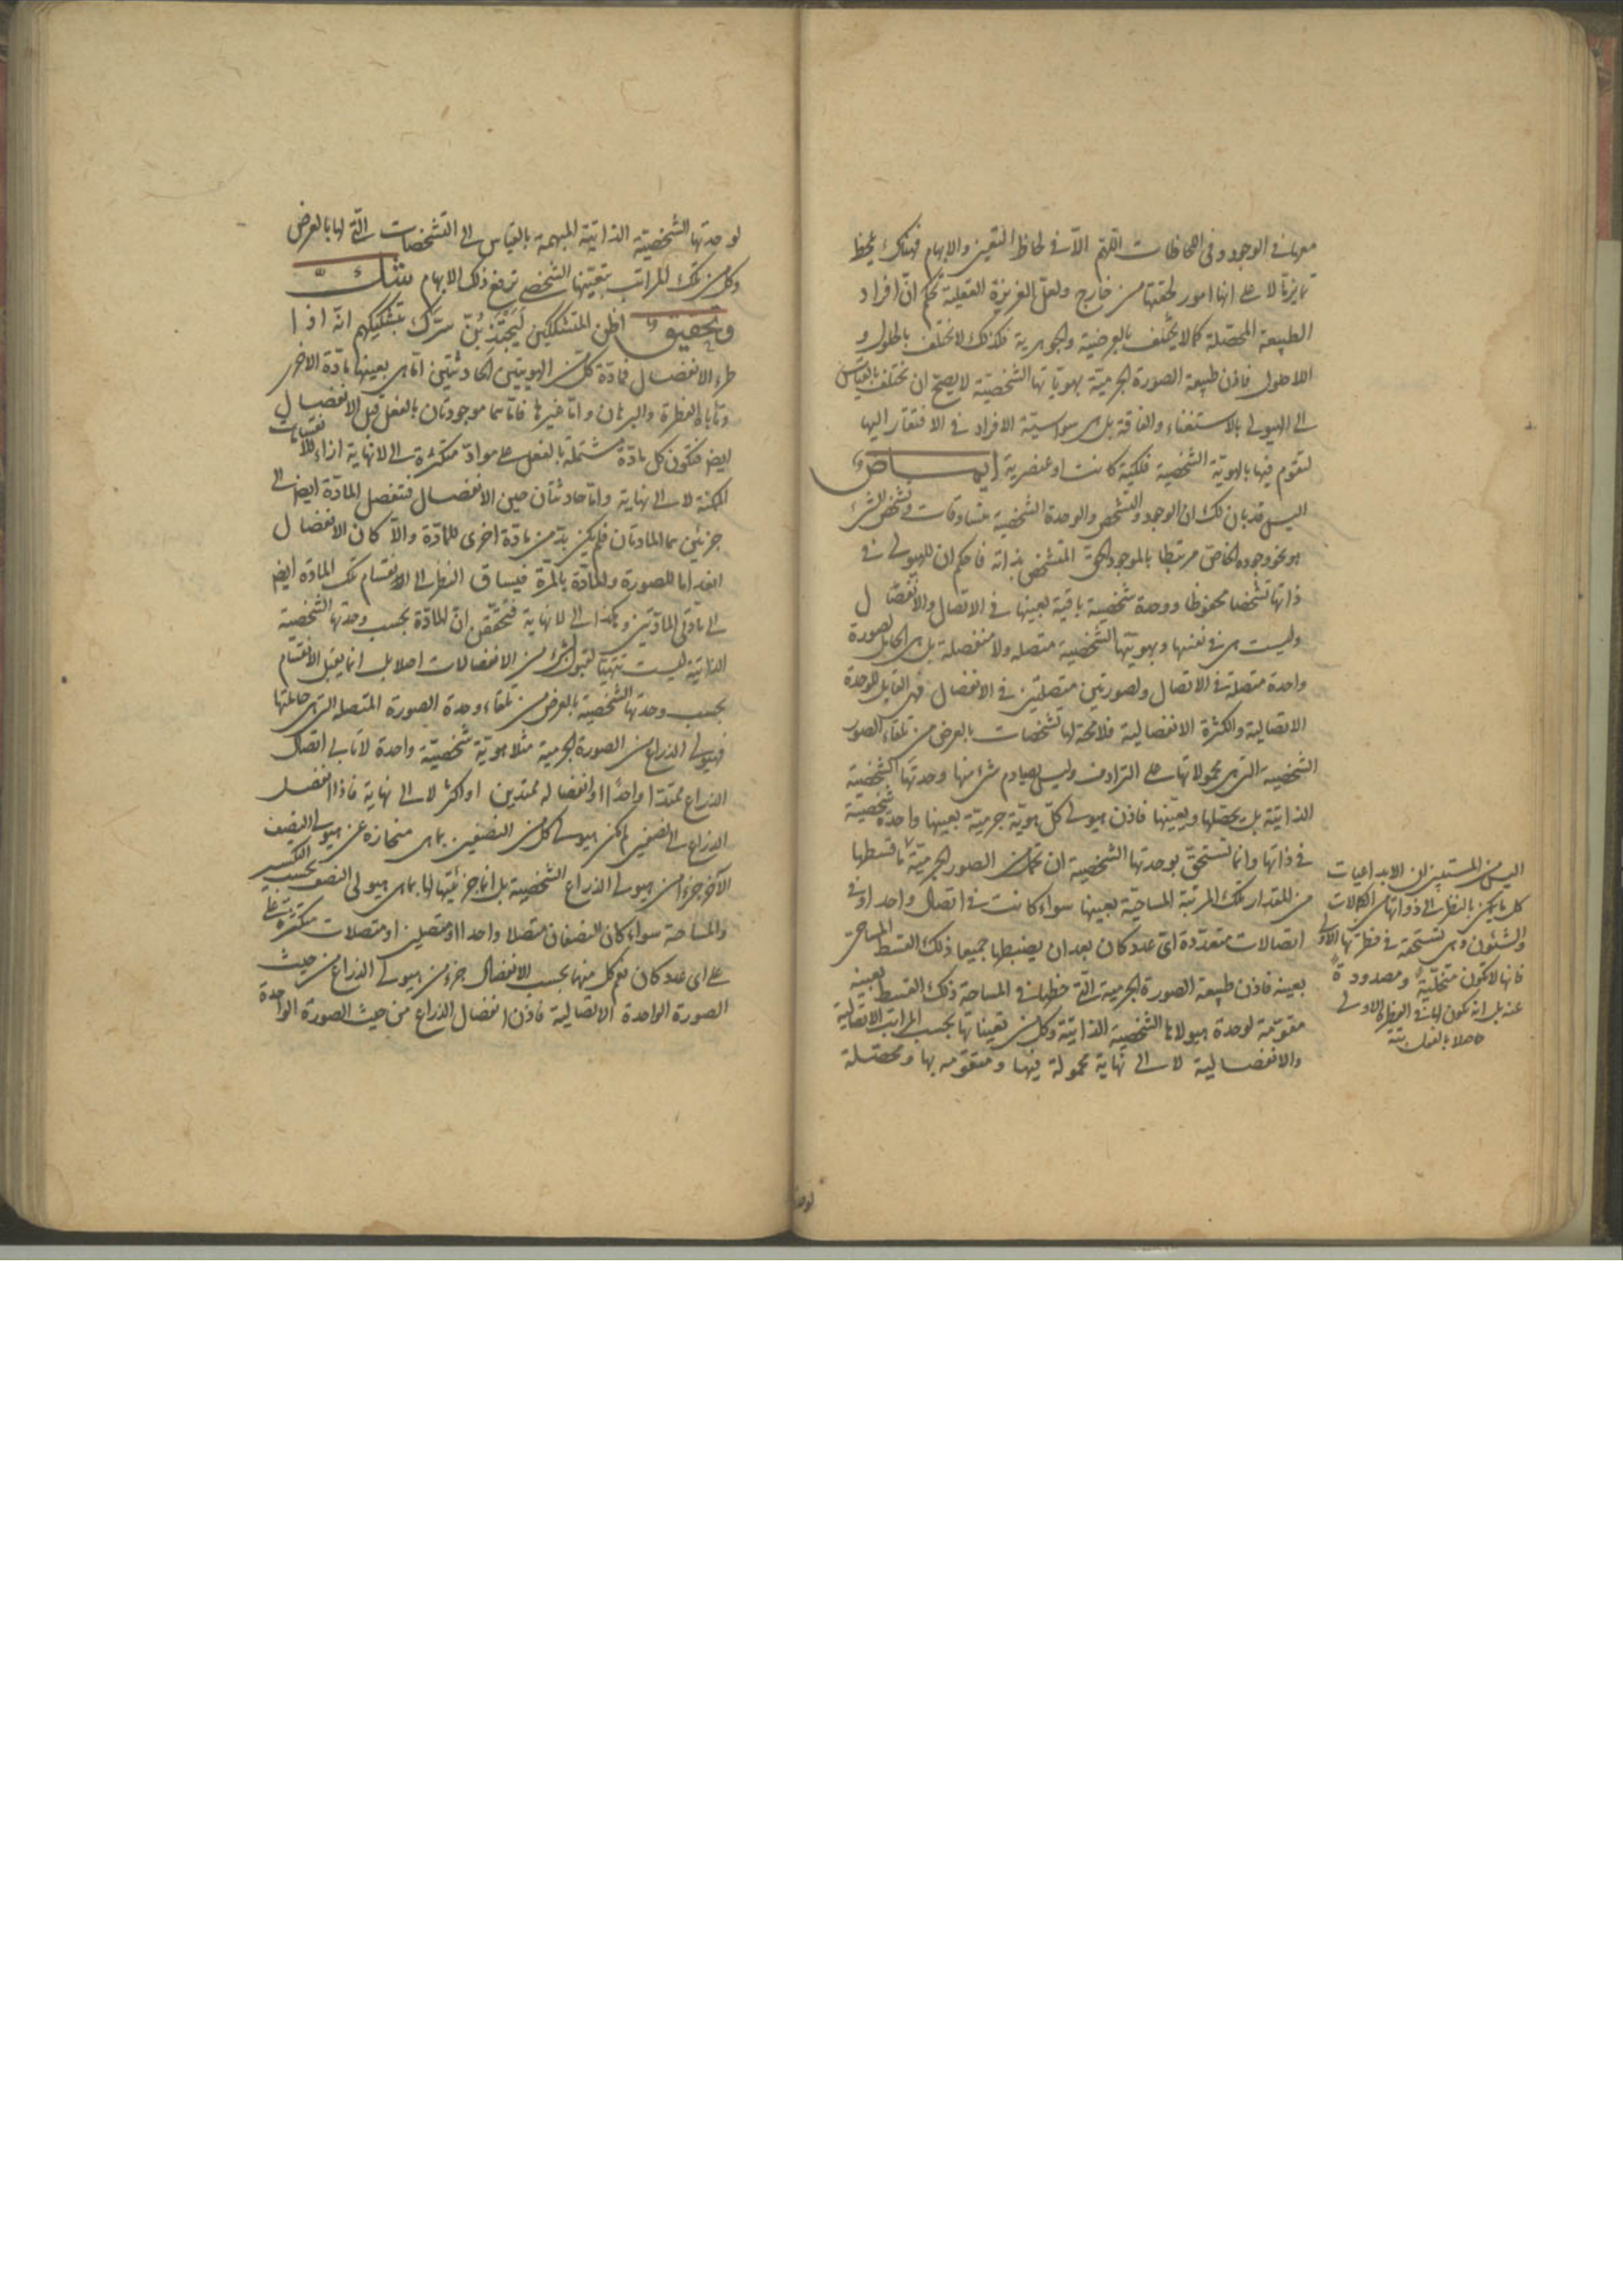 معها في الوجود وفي اللحاظات اللهم الا في لحاظ التعين والابهام فهنالك يلحظ
تمايزها لا على انها امور لحقتها من خارج ولعل الغريزة العقلية تحكم ان افراد
الطبيعة المحصلة كما لا يختلف بالعرضية والجوهرية فكذلك لا تختلف بالحلول و
اللاحلول فاذن طبيعة الصورة الجرمية بهوياتها الشخصية لا يصح ان تختلف بالقياس
الى الهيولى بالاستغناء والفاقة بل هي سواسية الافراد في الافتقار اليها
لتقوم فيها بالهوية الشخصية فلكية كانت او عنصرية ايماض
اليس قد بان لك ان الوجود والتشخص والوحدة الشخصية متساوقات وتشخص الشيء
هو نحو وجوده الخاص مرتبطا بالموجود الحق المتشخص بذاته فاحكم ان للهيولى في
ذاتها تشخصا محفوظا ووحدة شخصية باقية بعينها في الاتصال والانفصال
وليست هي في نفسها وبهويتها الشخصية متصلة ولا منفصلة بل هي الحامل لصورة
واحدة متصلة في الاتصال ولصورتين متصلتين في الانفصال فهي القابل للوحدة
الاتصالية والكثرة الانفصالية فلا محة لها تشخصات بالعرض من تلقاء الصور
الشخصية التي هي محمولاتها على الترادف وليس يصادم شيء منها وحدتها الشخصية
الذاتية بل يحصلها ويعينها فاذن هيولى كل هوية جرمية بعينها واحدة شخصية
في ذاتها وانما تستحق بوحدتها الشخصية ان تحمل من الصور الجرمية ما قسطها
من المقدار تلك المرتبة المساحية بعينها سواء كانت في اتصال واحد او في
اتصالات متعددة اى عدد كان بعد ان يضبطها جميعا ذلك القسط المساحي
بعينه فاذن طبيعة الصورة الجرمية التي حظها في المساحة ذلك القسط بعينه
مقومة لوحدة هيولاها الشخصية الذاتية وكل من تعيناتها بحسب المراتب الاتصالية
والانفصالية لا الى نهاية محمولة فيها ومتقومة بها ومحصلة
اليس من المستبين ان الابداعيات
كل ما يمكن بالنظر الى ذواتها من الكمالات
والشئون وهي تستحقه في فطرتها الاولى
فانها لا تكون متخلية ومصدودة
عنه بل انه يكون لها في الفطرة الاولى
حاصلا بالفعل بتة
لوحد
لوحدتها الشخصية الذاتية المبهمة بالقياس الى التشخصات التي لها بالعرض
وكل من تلك المراتب بتعينها الشخصي ترفع ذلك الابهام شك
وتحقيق اظن المتشككين يجتذبن سرك بتشكيكهم انه اذا
طرء الانفصال فمادة كل من الهويتين الحادثتين اما هي بعينها مادة الاخرى
وتاباه الفطرة والبرهان واما غيرها فاما هما موجودتان بالفعل قبل الانفصال
ايض فتكون كل مادة مشتملة بالفعل على مواد متكثرة الى لا نهاية ازاء الانقسامات
الممكنة لا الى نهاية واما حادثتان حين الانفصال فتنفصل المادة ايض الى
جزئين هما المادتان فلم يكن بد من مادة اخرى للمادة والا كان الانفصال
انعداما للصورة والمادة بالمرة فيساق النظر الى انقسام تلك المادة ايض
الى مادتي المادتين وهكذا الى لا نهاية فتحقق ان المادة بحسب وحدتها الشخصية
الذاتية ليست تتهيأ لقبول شيء من الانفصالات اصلا بل انما يقبل الانقسام
بحسب وحدتها الشخصية بالعرض من تلقاء وحدة الصورة المتصلة التي هي حاملتها
فهيولى الذراع من الصورة الجرمية مثلا هوية شخصية واحدة لا تأبى اتصال
الذراع ممتدا واحدا او انفصاله ممتدين او اكثر لا الى نهاية فاذا انفصل
الذراع الى نصفين لم يكن هيولى كل من النصفين بما هي منحازة عن هيولى النصف
الآخر جزءا من هيولى الذراع الشخصية بل انما جزئيتها لها بما هي هيولى النصف بحسب الكسر
والمساحة سواء كان النصفان متصلا واحدا او متصلين او متصلات متكثرة
على اى عدد كان نعم كل منهما بحسب الانفصال جزء من هيولى الذراع من حيث
الصورة الواحدة الاتصالية فاذن انفصال الذراع من حيث الصورة الواحدة